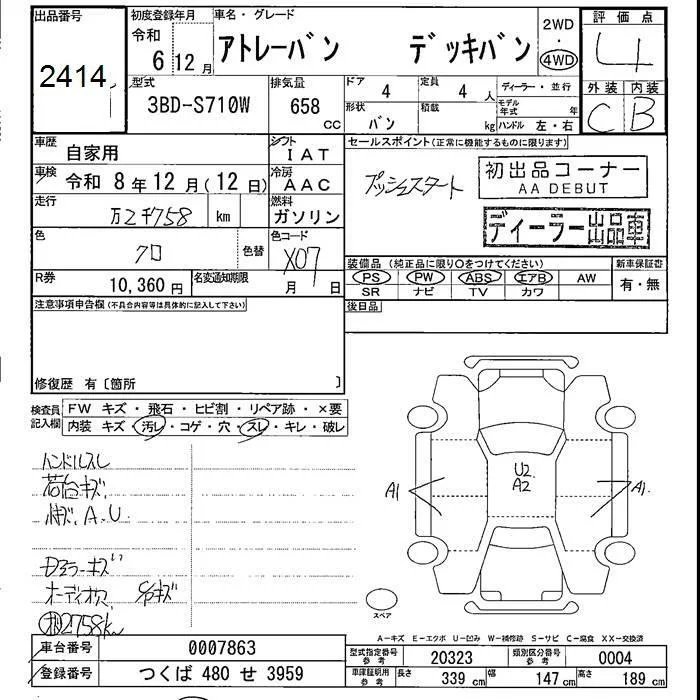 出品番号
2414
初度登録年月
令和
6 12月
車名・グレード
アトレーバン デッキバン
2WD
・
4WD
評価点
4
型式
3BD-S710W
排気量
658
cc
ドア
4
定員
4 人
形状
バン
積載
kg
ディーラー・並行
モデル年式 年
ハンドル 左・右
外装 内装
C B
車歴
自家用
シフト
IAT
車検
令和 8年12月(12日)
冷房
AAC
走行
万2千758 km
燃料
ガソリン
色
クロ
色替
色コード
X07
R券
10,360 円
名変通知期限
月 日
セールスポイント(正常に機能するものに限ります)
プッシュスタート
初出品コーナー
AA DEBUT
ディーラー出品車
装備品 (純正品に限り○をつけてください)
PS PW ABS エアB AW
SR ナビ TV カワ
新車保証書
有・無
後日品
注意事項申告欄(不具合内容等は具体的に記入して下さい)
修復歴 有〔箇所 〕
検査員記入欄
FW キズ・飛石・ヒビ割・リペア跡・×要
内装 キズ・汚レ・コゲ・穴・スレ・キレ・破レ
ハンドルスレ
荷台キズ
A.U
ミラーキズ
オーディオス
2758km
A1
U2
A2
A1
スペア
A-キズ E-エクボ U-凹み W-補修跡 S-サビ C-腐食 XX-交換済
車台番号
0007863
登録番号
つくば 480 せ 3959
型式指定番号
参考
20323
類別区分番号
参考
0004
車庫証明用
参考
長さ 339 cm 幅 147 cm 高さ 189 cm